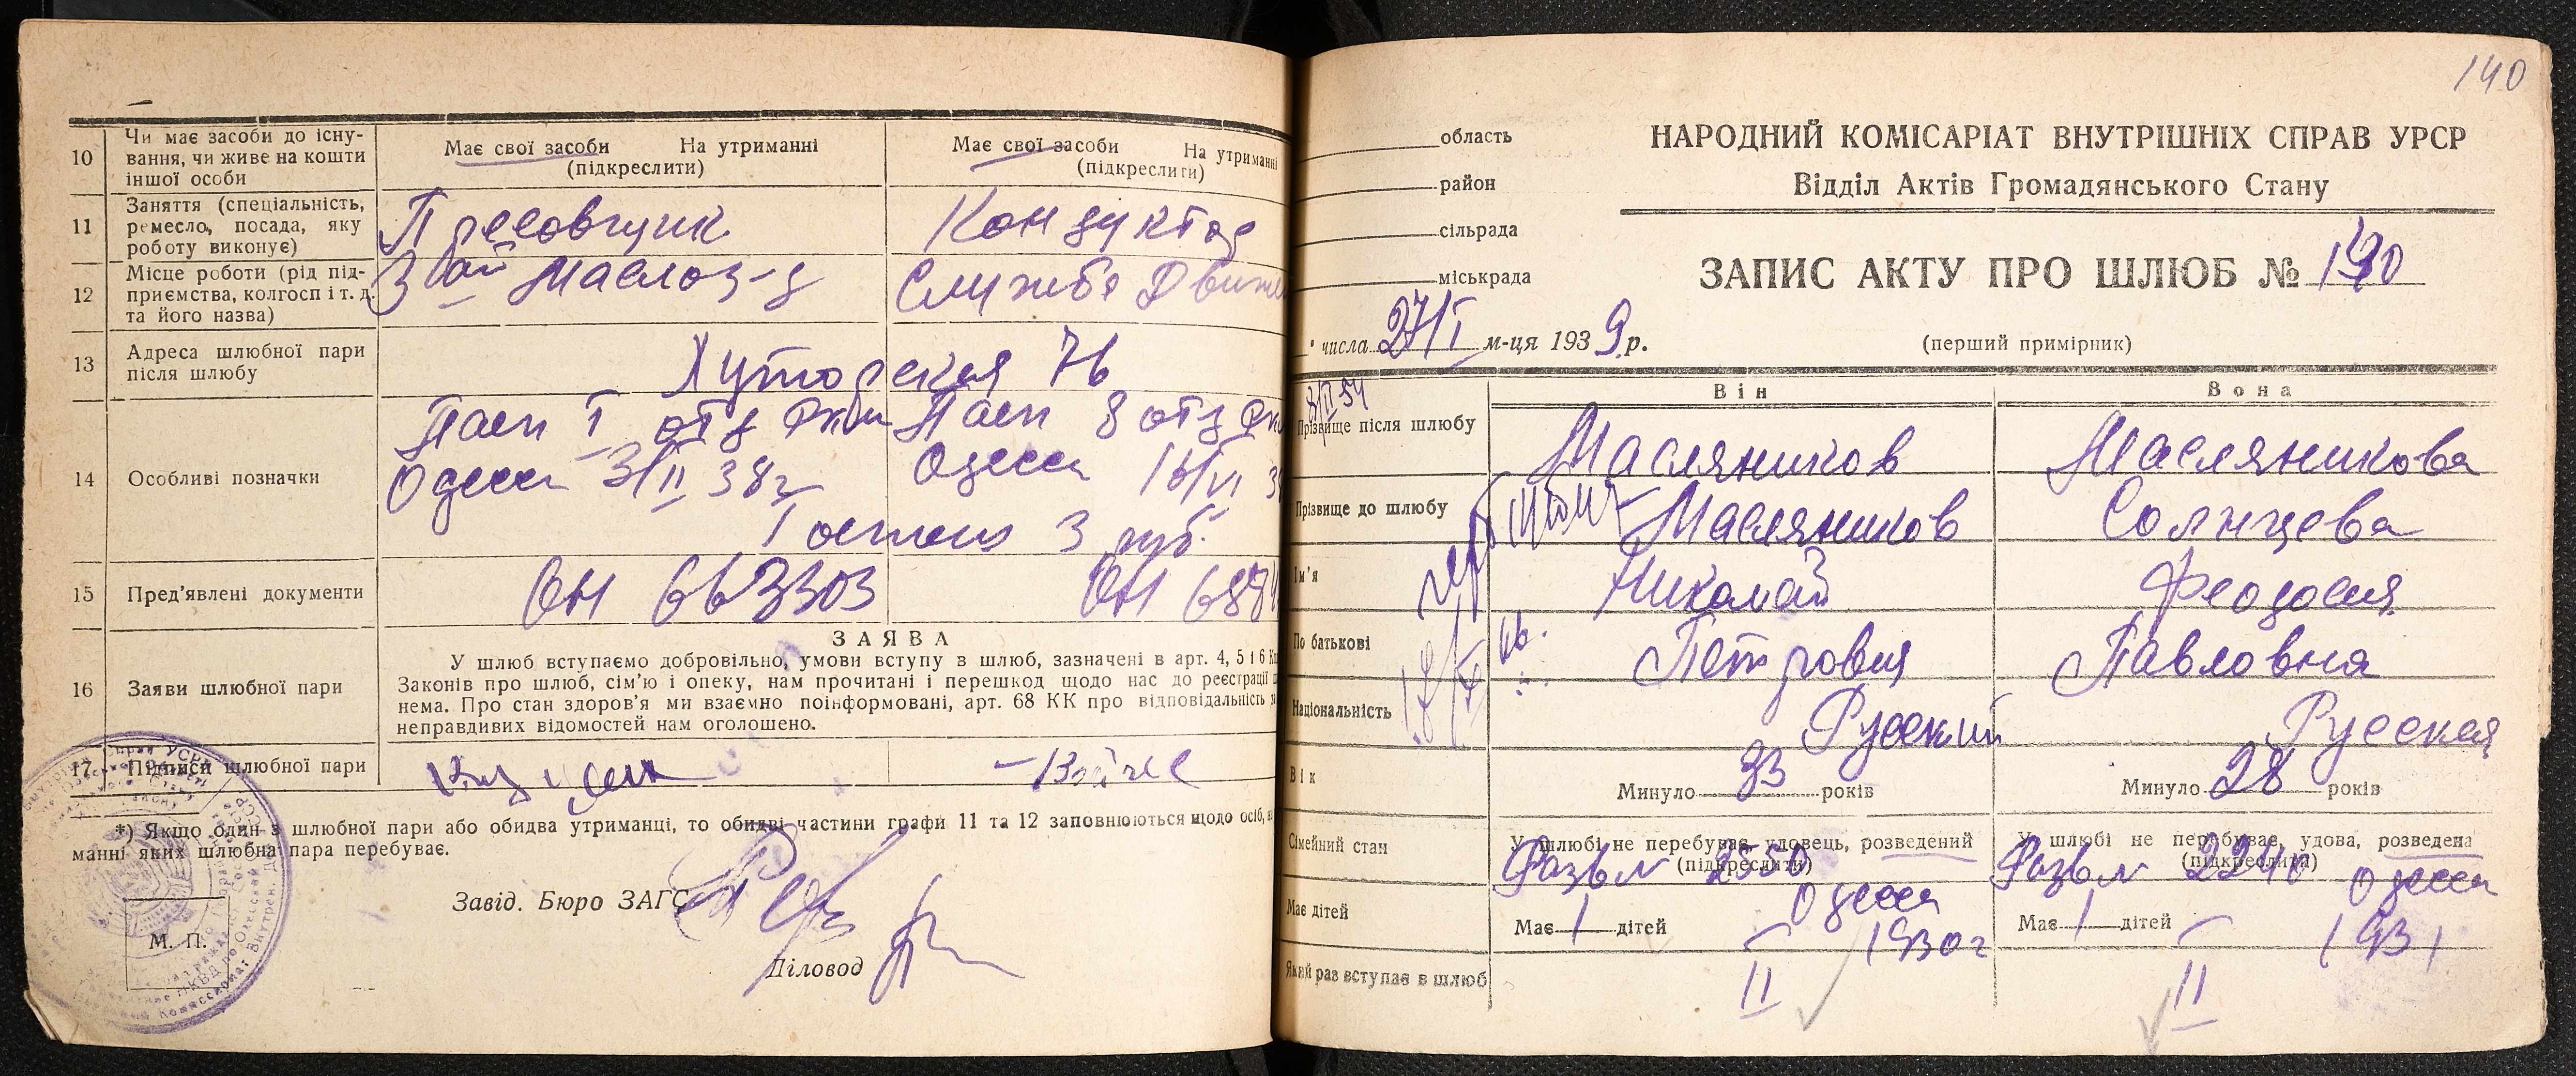 10
Чи має засоби до існу-
вання, чи живе на кошти
іншої особи
Має свої засоби На утриманні
(підкреслити)
Має свої засоби На утриманні
(підкреслити)
11
Заняття (спеціальність,
ремесло, посада, яку
роботу виконує)
Прессовщик
Кондуктор
12
Місце роботи (рід під-
приємства, колгосп і т. д.
та його назва)
Маслоз-д
Служба Движе
13
Адреса шлюбної пари
після шлюбу
Хуторская 76
14
Особливі позначки
Пасп I отд
Одесса 3/II 38г
Пасп 8 отд
Одесса 16/VI 3
3 руб.
15
Пред'явлені документи
ОН 663303
ОН 688
16
Заяви шлюбної пари
ЗАЯВА
У шлюб вступаємо добровільно, умови вступу в шлюб, зазначені в арт. 4, 5 і 6 К
Законів про шлюб, сім'ю і опеку, нам прочитані і перешкод щодо нас до реєстрації
нема. Про стан здоров'я ми взаємно поінформовані, арт. 68 КК про відповідальність за
неправдивих відомостей нам оголошено.
17
Підписи шлюбної пари
*) Якщо один з шлюбної пари або обидва утриманці, то обидві частини графи 11 та 12 заповнюються щодо осіб, на
манні яких шлюбна пара перебуває.
Завід. Бюро ЗАГС
М. П.
Діловод
140
область
район
сільрада
міськрада
НАРОДНИЙ КОМІСАРІАТ ВНУТРІШНІХ СПРАВ УРСР
Відділ Актів Громадянського Стану
ЗАПИС АКТУ ПРО ШЛЮБ № 140
" числа 27/I м-ця 1939 р.
(перший примірник)
Він
Вона
Прізвище після шлюбу
Масляников
Масляникова
Прізвище до шлюбу
Масляников
Солнцева
Ім'я
Николай
Феодосия
По батькові
Петрович
Павловна
Національність
Русский
Русская
Вік
Минуло 33 років
Минуло 28 років
Сімейний стан
У шлюбі не перебуває, удовець, розведений
(підкреслити)
Разв № 2550
Одесса
1930г
У шлюбі не перебуває, удова, розведена
(підкреслити)
Разв № 2240 Одесса
1931
Має дітей
Має 1 дітей
Має 1 дітей
Який раз вступає в шлюб
II
II